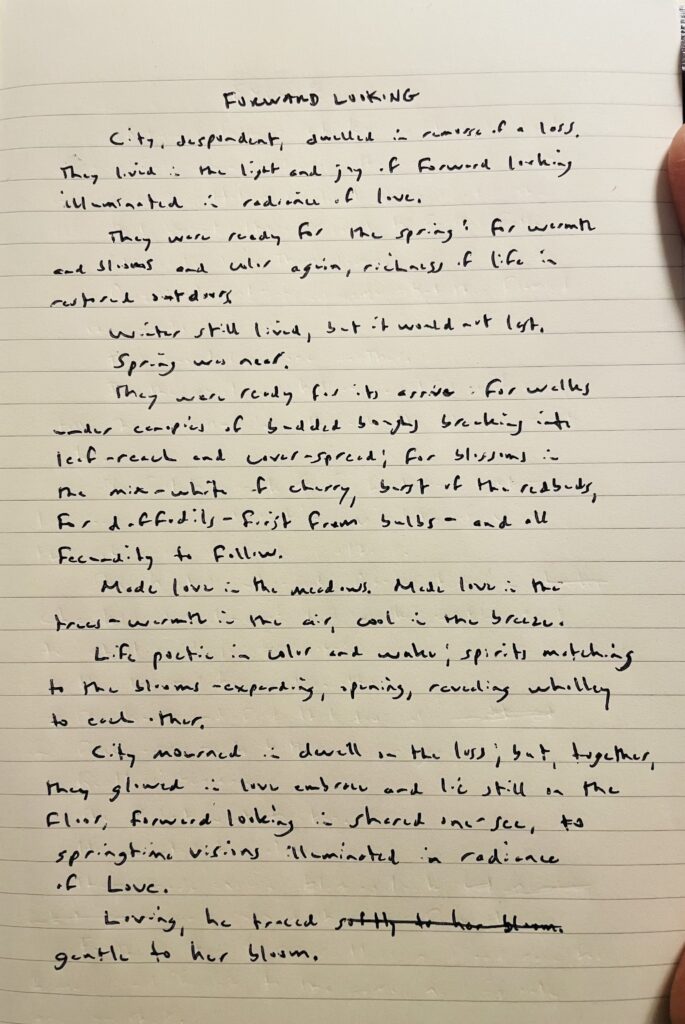 FORWARD LOOKING
City, despondent, dwelled in remorse of a loss.
They lived in the light and joy of forward looking
illuminated in radiance of love.
They were ready for the spring: for warmth
and blooms and color again, richness of life in
restored outdoors
Winter still lived, but it would not last.
Spring was near.
They were ready for its arrive: for walks
under canopies of budded boughs breaking into
leaf-reach and cover-spread; for blossoms in
the mix-white of cherry, burst of the redbuds,
for daffodils - first from bulbs - and all
fecundity to follow.
Made love in the meadows. Made love in the
trees - warmth in the air, cool in the breeze.
Life poetic in color and wake; spirits matching
to the blooms - expanding, opening, revealing wholley
to each other.
City mourned in dwell on the loss; but, together,
they glowed in love embrace and lie still on the
floor, forward looking in shared one-see, to
springtime visions illuminated in radiance
of Love.
Loving, he traced softly to her bloom.
gentle to her bloom.